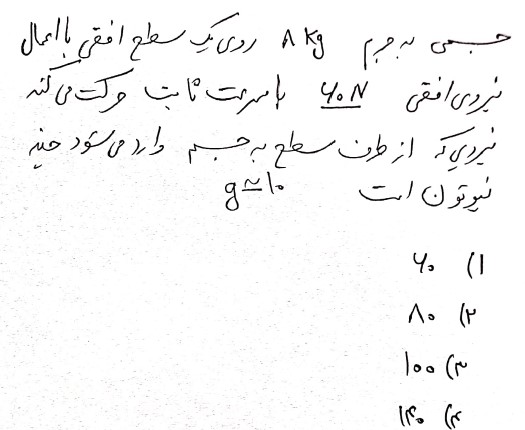 جسمی به جرم ۸ Kg روی یک سطح افقی با اعمال
نیروی افقی ۶۰N با سرعت ثابت حرکت می کند
نیرویی که از طرف سطح به جسم وارد می شود چند
نیوتون است g≃۱۰
۱) ۶۰
۲) ۸۰
۳) ۱۰۰
۴) ۱۴۰